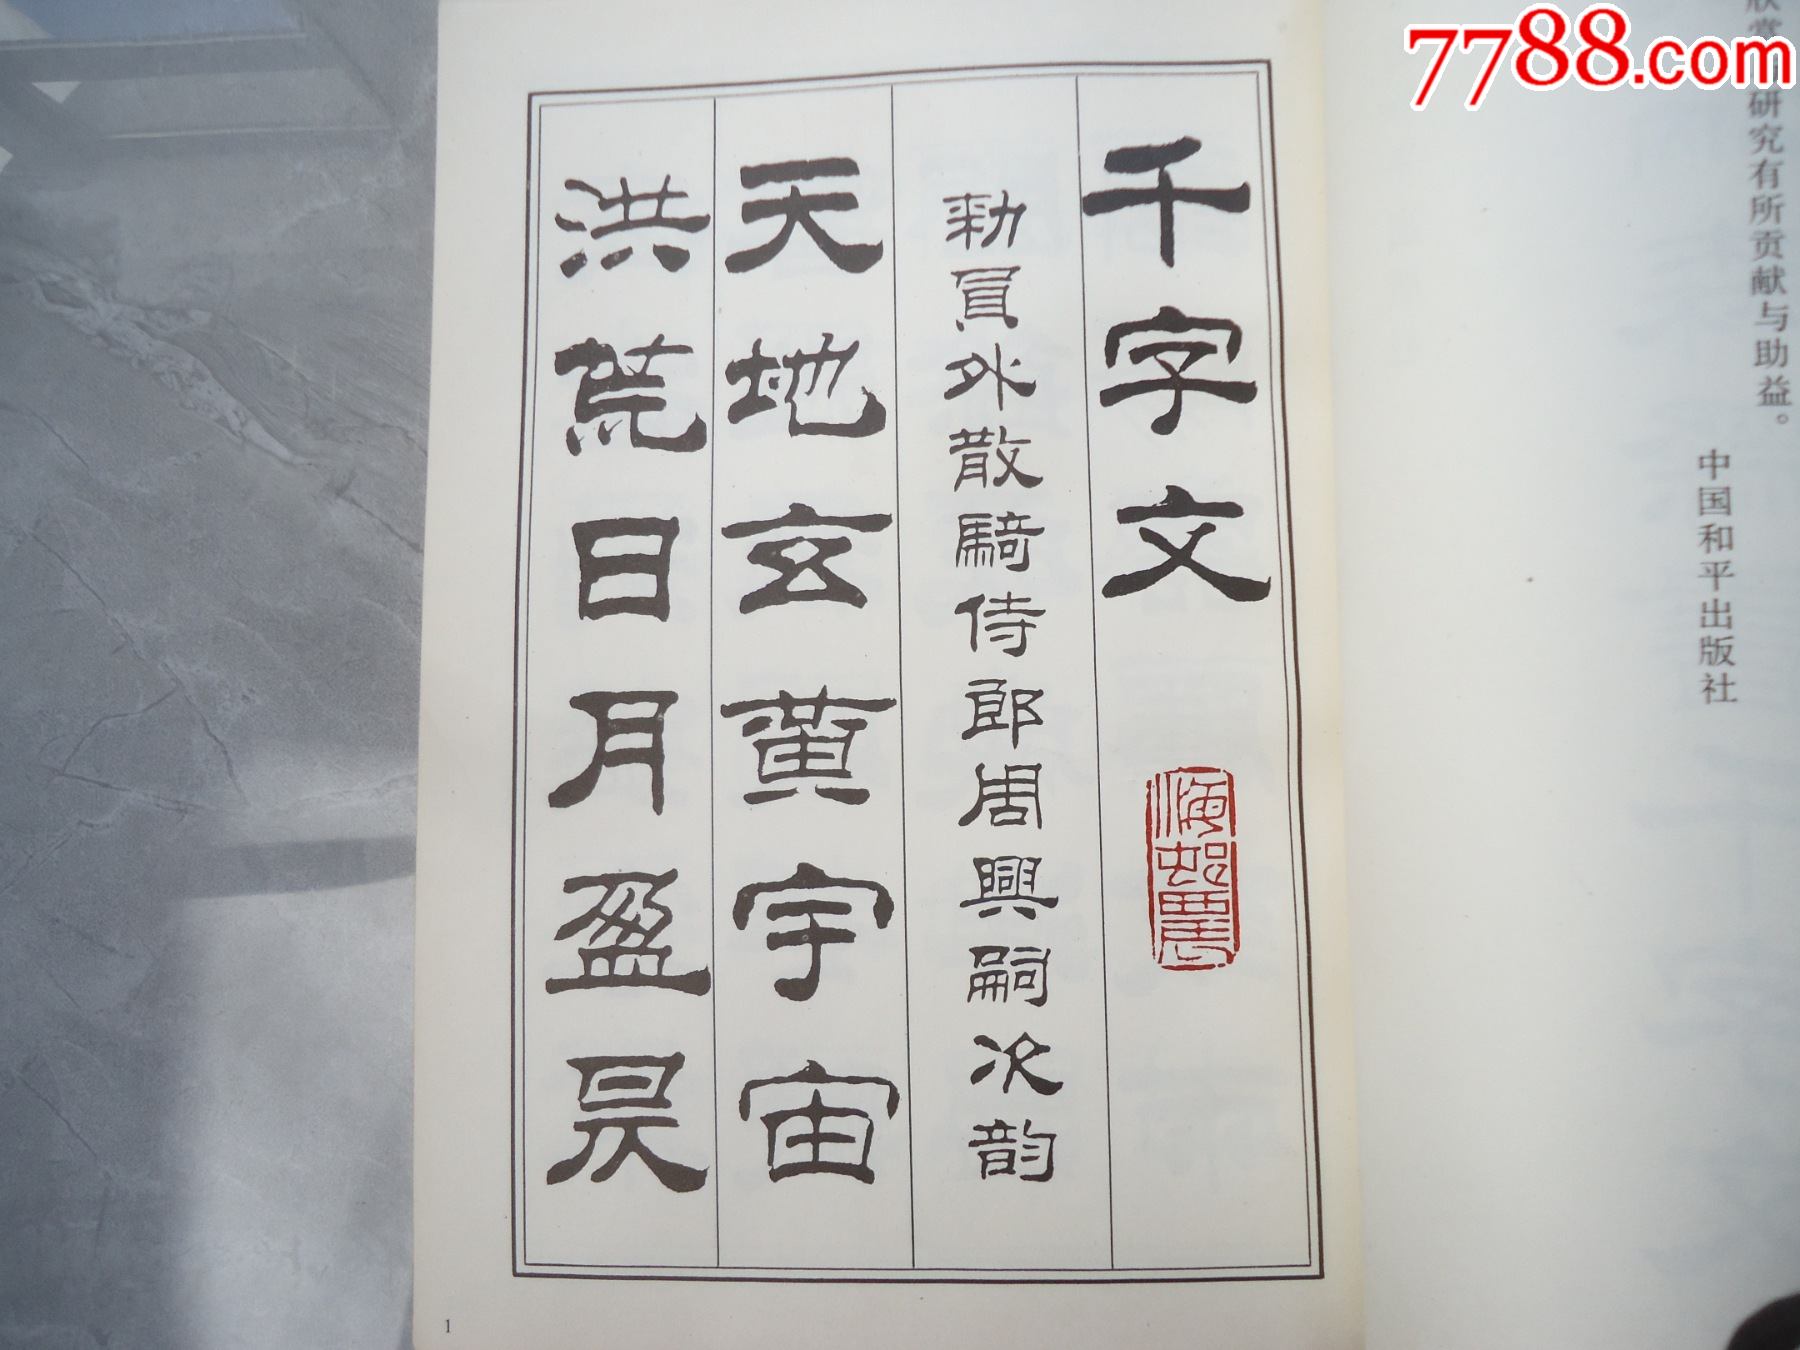 7788.com
研究有所贡献与助益。
中国和平出版社
千字文
勑員外散騎侍郎周興嗣次韵
天地玄黃宇宙
洪荒日月盈昃
1